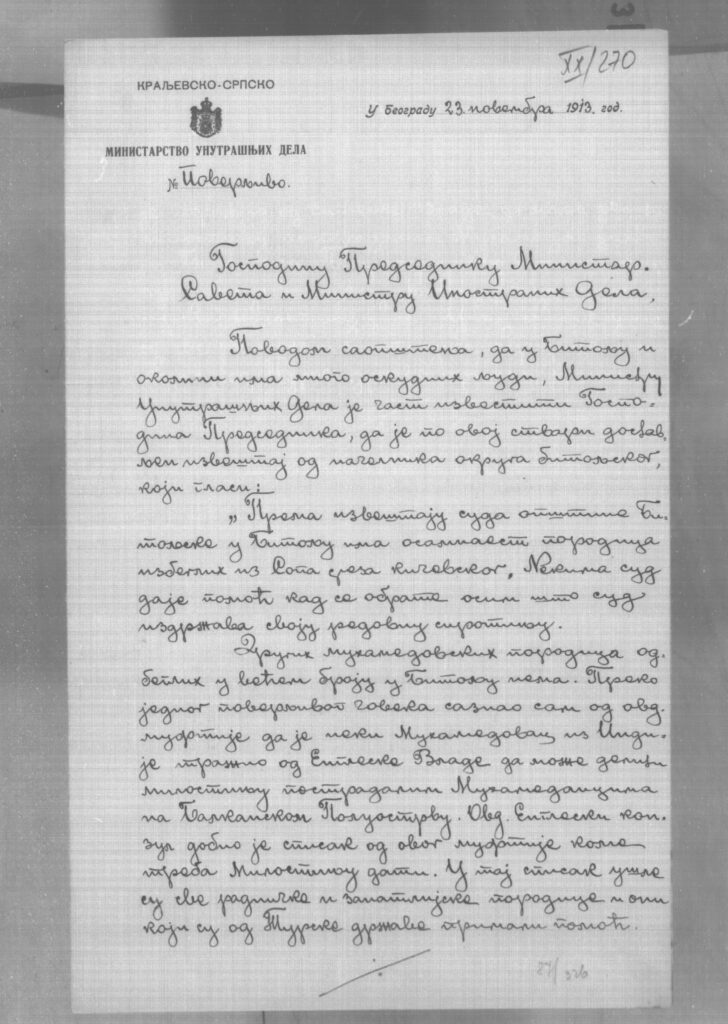 XX/270
КРАЉЕВСКО-СРПСКО
У Београду 23. новембра 1913. год.
МИНИСТАРСТВО УНУТРАШЊИХ ДЕЛА
№ Поверљиво.
Господину Председнику Министар.
Савета и Министру Иностраних Дела,
Поводом саопштења, да у Битољу и
околини има много оскудних људи, Министру
Унутрашњих Дела је част известити Госпо-
дина Председника, да је по овој ствари достав-
љен извештај од начелника округа битољског,
који гласи:
„Према извештају суда општине Би-
тољске у Битољу има осамнаест породица
избеглих из Сопа среза кичевског. Некима суд
даје помоћ кад се обрате осим што суд
издржава своју редовну сиротињу.
Других мухамедовских породица од-
беглих у већем броју у Битољу нема. Преко
једног поверљивог човека сазнао сам од овд.
муфтије да је неки Мухамедовац из Инди-
је тражио од Енглеске Владе да може делити
милостињу пострадалим Мухамеданцима
на Балканском Полуострву. Овд. Енглески кон-
зул добио је списак од овог муфтије коме
треба милостињу дати. У тај списак ушле
су све радничке и занатлијске породице и они
који су од Турске државе примали помоћ.